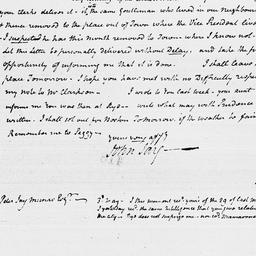 your clerks deliver it - of the same Gentleman who lived in our Neighbour
thence removed to the place out of Town where the Vice President lived
I suspect he has this month removed to Town - where I know not -
let this Letter be personally delivered without Delay, and take the f
opportunity of informing me that it is done. I shall leave
place Tomorrow - I hope you have met with no Difficulty respe
my note to Mr Clarkson. I wrote to you last week - you aunt
informs me you was then at Rye - write what may with Prudence
written - I shall set out for Boston Tomorrow, if the weather be fair
Remember me to Peggy -
yours very affy
John Jay -
Peter Jay Munro Esqr -
I this moment recd yours of the 29 of last m
Yesterday recd the same Intelligence that you